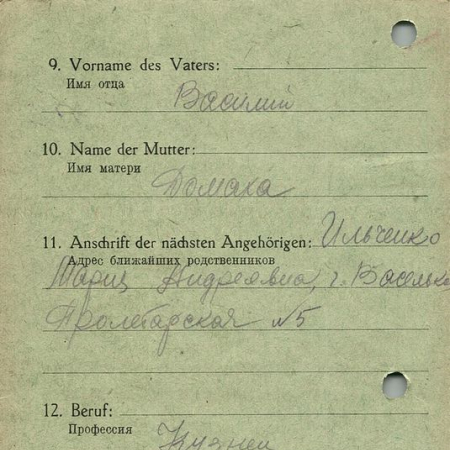 9. Vorname des Vaters:
Имя отца
Василий
10. Name der Mutter:
Имя матери
Домаха
11. Anschrift der nächsten Angehörigen: Ильченко
Адрес ближайших родственников
Мария Андреевна, г. Васильк
Пролетарская №5
12. Beruf:
Профессия
Кузнец